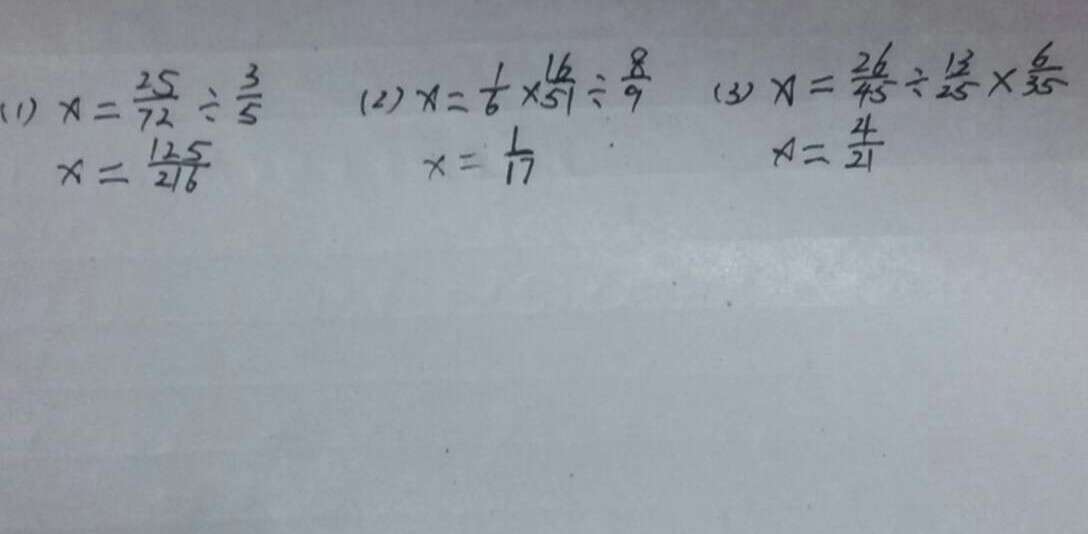 (1) x = 25/72 ÷ 3/5
x = 125/216
(2) x = 1/6 × 16/51 ÷ 8/9
x = 1/17
(3) x = 26/45 ÷ 13/25 × 6/35
x = 4/21